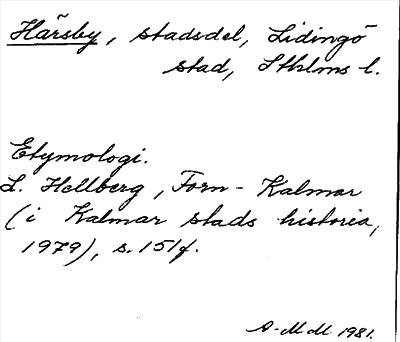 Härsby, stadsdel, Lidingö
stad, Sthlms l.
Etymologi.
L. Hellberg, Forn-Kalmar
(i Kalmar stads historia,
1979), s. 151f.
A-MM 1981.